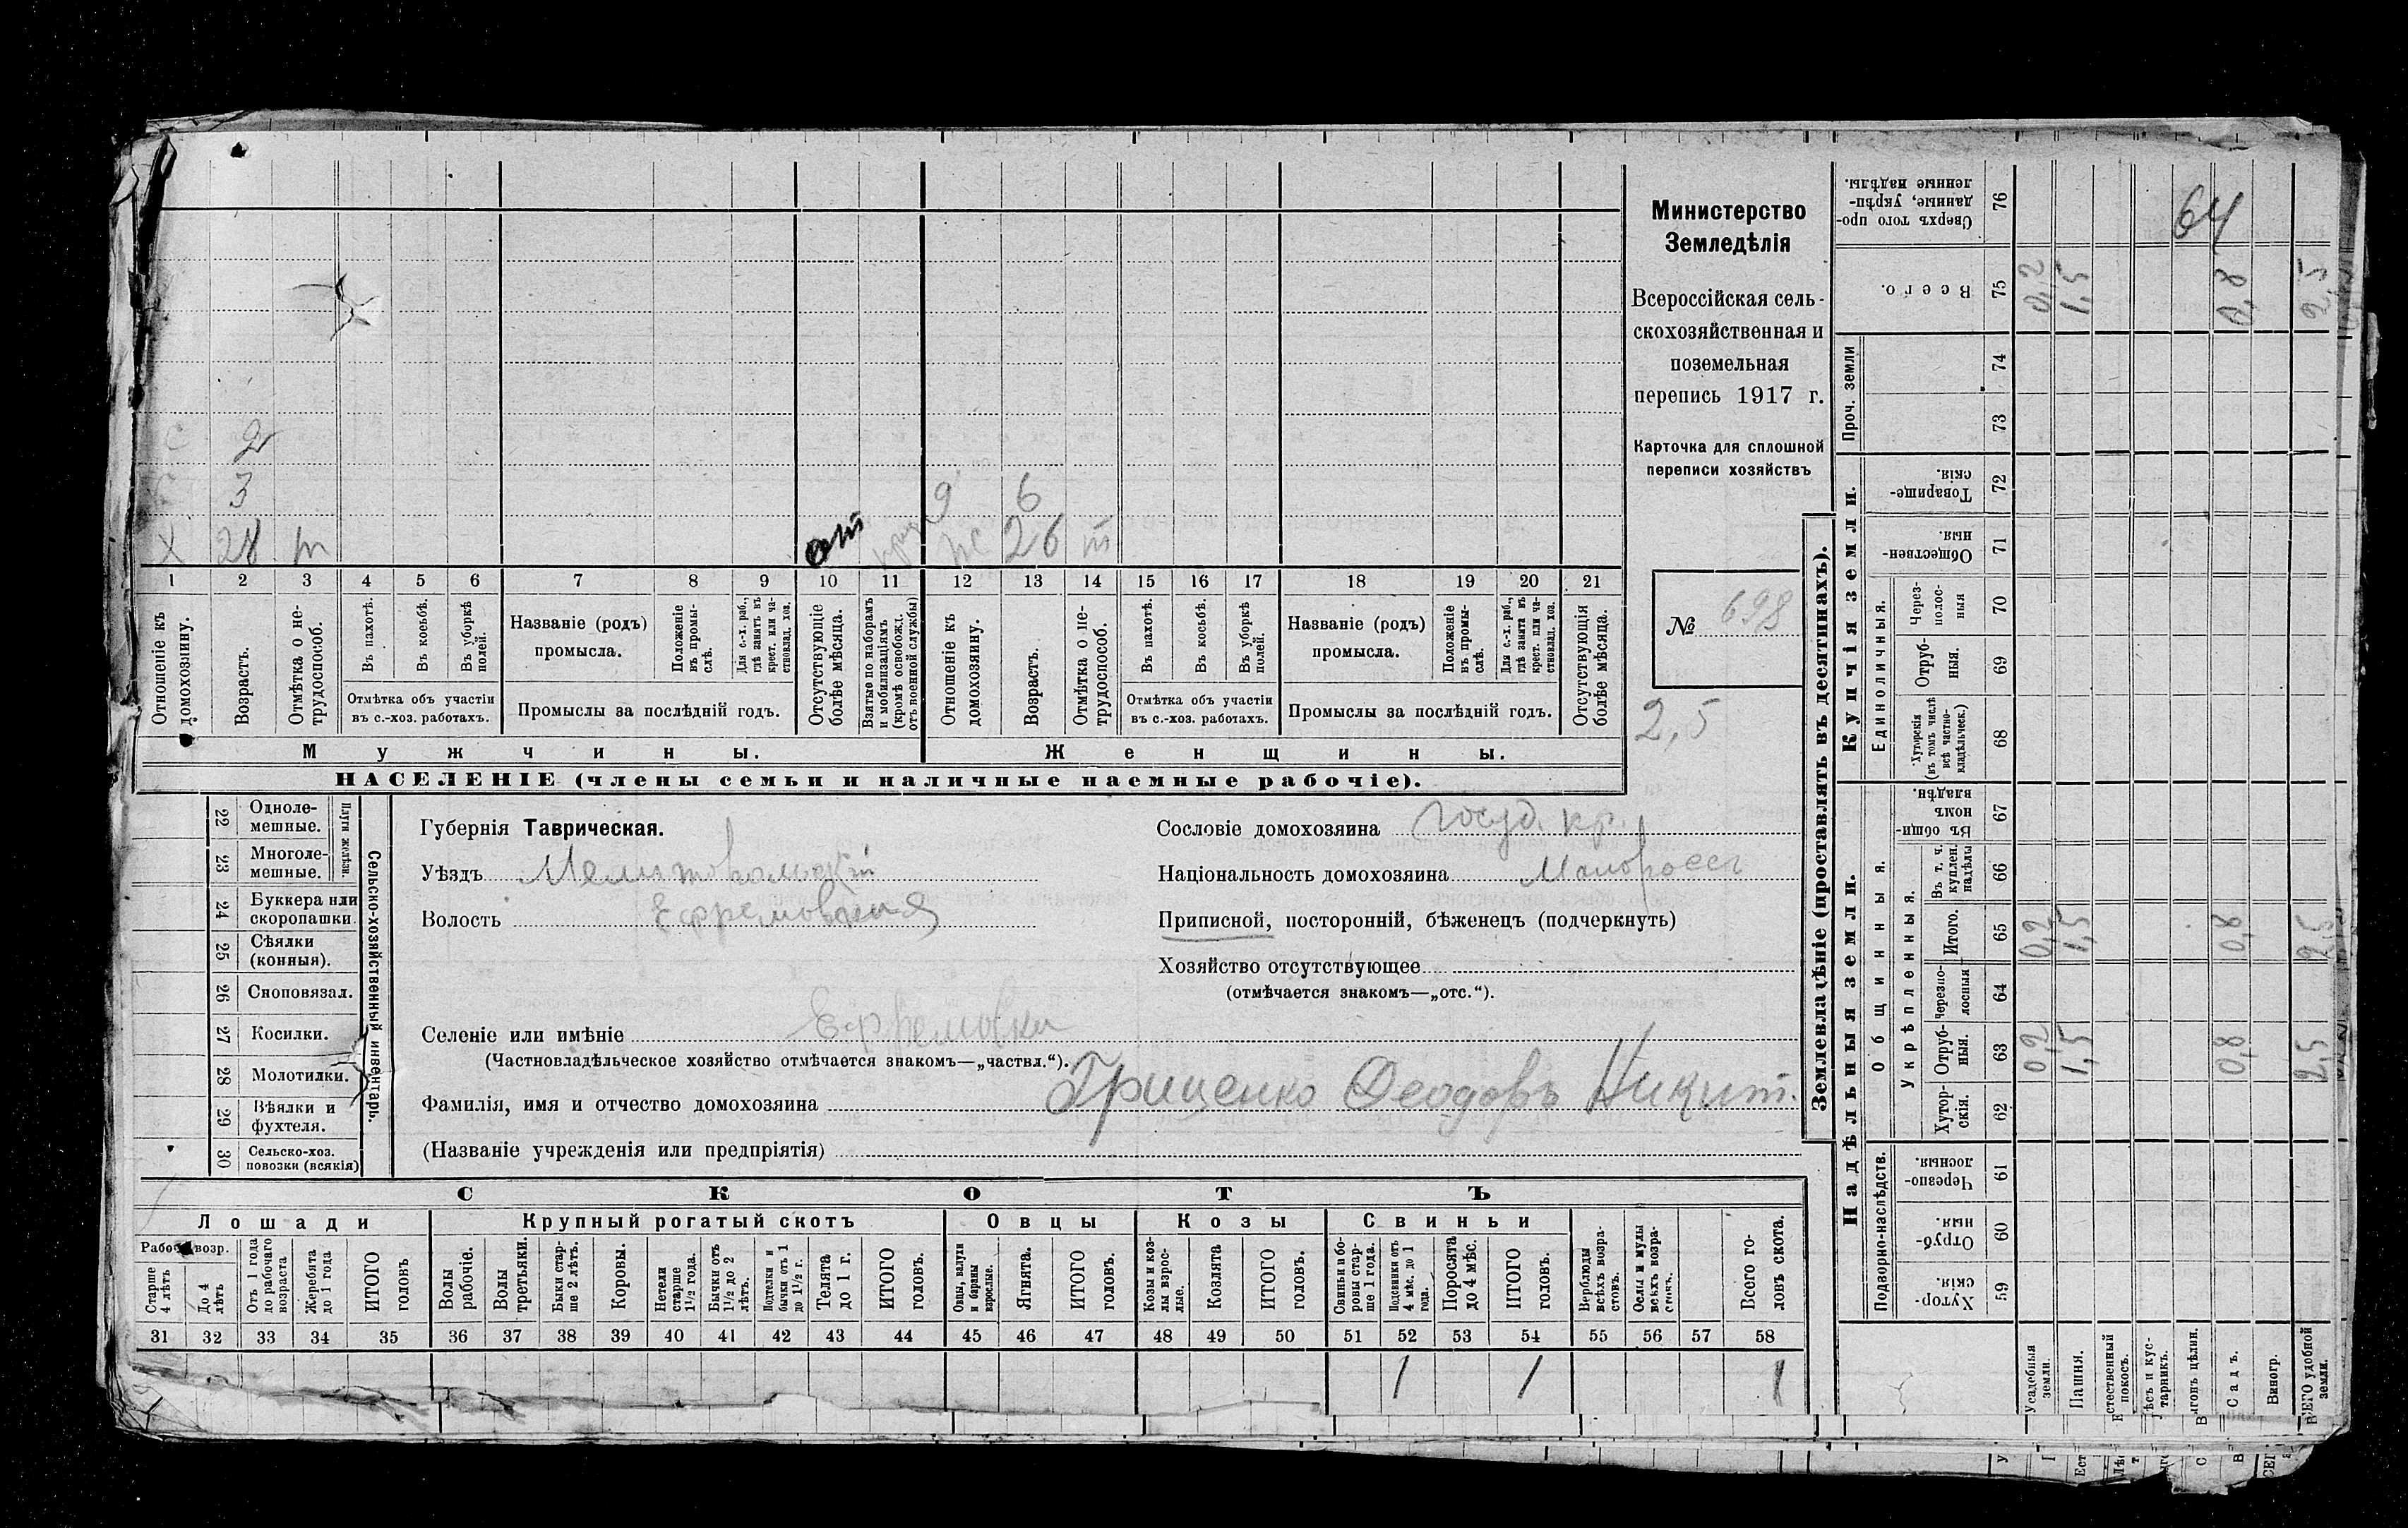 Министерство
Земледѣлія
Всероссійская сель-
скохозяйственная и
поземельная
перепись 1917 г.
Карточка для сплошной
переписи хозяйствъ
№ 698
2,5
С 2
3 6
Х 28 от 26
1 2 3 4 5 6 7 8 9 10 11 12 13 14 15 16 17 18 19 20 21
Отношеніе къ домохозяину.
Возрастъ.
Отмѣтка о не-трудоспособ.
Въ пахотѣ.
Въ косьбѣ.
Въ уборкѣ полей.
Отмѣтка объ участіи
въ с.-хоз. работахъ.
Названіе (родъ)
промысла.
Положеніе въ промы-слѣ.
Для с.-х. раб., гдѣ занятъ въ крест. или ча-ствовлад. хоз.
Промыслы за послѣдній годъ.
Отсутствующіе болѣе мѣсяца.
Взятые по наборамъ и мобилизаціямъ (кромѣ освобожд. отъ военной службы)
Отношеніе къ домохозяину.
Возрастъ.
Отмѣтка о не-трудоспособ.
Въ пахотѣ.
Въ косьбѣ.
Въ уборкѣ полей.
Отмѣтка объ участіи
въ с.-хоз. работахъ.
Названіе (родъ)
промысла.
Положеніе въ промы-слѣ.
Для с.-х. раб., гдѣ занята въ крест. или ча-ствовлад. хоз.
Промыслы за послѣдній годъ.
Отсутствующія болѣе мѣсяца.
Мужчины.
Женщины.
НАСЕЛЕНІЕ (члены семьи и наличные наемные рабочіе).
Губернія Таврическая.
Уѣздъ Мелитопольскій
Волость Ефремовская
Селеніе или имѣніе Ефремовка
(Частновладѣльческое хозяйство отмѣчается знакомъ—„частвл.“).
Фамилія, имя и отчество домохозяина Гриценко Феодоръ Никит.
(Названіе учрежденія или предпріятія)
Сословіе домохозяина госуд. кр.
Національность домохозяина Малороссъ
Приписной, посторонній, бѣженецъ (подчеркнуть)
Хозяйство отсутствующее
(отмѣчается знакомъ—„отс.“).
Сельско-хозяйственный инвентарь.
Плуги желѣзн.
22 Одноле-мешные.
23 Многоле-мешные.
24 Буккера или скоропашки.
25 Сѣялки (конныя).
26 Сноповязал.
27 Косилки.
28 Молотилки.
29 Вѣялки и фухтеля.
30 Сельско-хоз. повозки (всякія)
СКОТЪ
Лошади
Крупный рогатый скотъ
Овцы
Козы
Свиньи
Рабоч. возр.
Старше 4 лѣтъ
До 4 лѣтъ
Отъ 1 года до рабочаго возраста
Жеребята до 1 года
ИТОГО головъ
Волы рабочіе.
Волы третьяки.
Быки стар-ше 2 лѣтъ.
Коровы.
Нетели старше 1½ года.
Бычки отъ 1½ до 2 лѣтъ.
Подтелки и бычки отъ 1 до 1½ г.
Телята до 1 г.
ИТОГО головъ.
Овцы, валухи и бараны взрослые.
Ягнята.
ИТОГО головъ.
Козы и коз-лы взрос-лые.
Козлята
ИТОГО головъ.
Свиньи и бо-ровы стар-ше 1 года.
Подсвинки отъ 4 мѣс. до 1 года.
Поросята до 4 мѣс.
ИТОГО головъ.
Верблюды всѣхъ возра-стовъ.
Ослы и мулы всѣхъ возра-стовъ.
Всего го-ловъ скота.
31 32 33 34 35 36 37 38 39 40 41 42 43 44 45 46 47 48 49 50 51 52 53 54 55 56 57 58
1 1 1
Землевладѣніе (проставлять въ десятинахъ).
Надѣльныя земли.
Купчія земли.
Проч. земли
Подворно-наслѣдств.
Общинныя.
Укрѣпленныя.
Единоличныя.
Сверхъ того про-данные, укрѣп-ленные надѣлы. 76
Всего. 75 0,2 1,5 0,8 2,5
64
74
73
Товарище-скія. 72
Обществен-ныя. 71
Через-полос-ныя 70
Отруб-ныя. 69
Хуторскія (въ томъ числѣ всѣ частно-владѣльческ.) 68
Въ общи-номъ владѣн. 67
Въ т. ч. куплен. надѣлы 66
Итого. 65 0,2 1,5 0,8 2,5
Черезпо-лосныя 64
Отруб-ныя. 63 0,2 1,5 0,8 2,5
Хутор-скія. 62
Черезпо-лосныя. 61
Отруб-ныя. 60
Хутор-скія. 59
Усадебныя земли.
Пашня.
Естественный покосъ.
Лѣсъ и кус-тарникъ.
Выгонъ цѣлин.
Садъ.
Виногр.
ВСЕГО удобной земли.